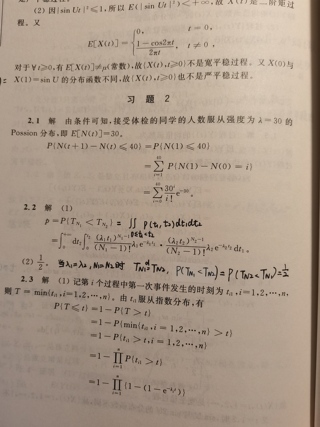 (2)因|sin Ut|²≤1,所以 E(|sin Ut|²)<+∞,故
程。又
E[X(t)]={ 0, t=0,
(1−cos2πt)/(2πt), t≠0,
对于∀t≥0,有E[X(t)]≠μ(常数),故{X(t),t≥0}不是宽平稳过程。又X(0)与
X(1)=sin U 的分布函数不同,故{X(t),t≥0}也不是严平稳过程。
习 题 2
2.1 解 由条件可知,接受体检的同学的人数服从强度为 λ=30 的
Possion 分布,即 E[N(t)]=30。
P(N(t+1)−N(t)≤40)=P(N(1)≤40)
=∑_{i=0}^{40} P(N(1)−N(0)=i)
=∑_{i=0}^{40} (30^i/i!) e^{−30}。
2.2 解 (1)
p=P(T_{N₁}<T_{N₂}) = ∬ p(t₁,t₂)dt₁dt₂
=∫₀^∞ dt₂∫₀^{t₂} ((λ₁t₁)^{N₁−1}/(N₁−1)!) λ₁e^{−λ₁t₁} · ((λ₂t₂)^{N₂−1}/(N₂−1)!) λ₂e^{−λ₂t₂} dt₁。
(2) 1/2. 当λ₁=λ₂, N₁=N₂时 T_{N₁} =^d T_{N₂}, P(T_{N₁}<T_{N₂})=P(T_{N₂}<T_{N₁})=1/2
2.3 解 (1)记第 i 个过程中第一次事件发生的时刻为 t_{i1},i=1,2,⋯,n。
则 T = min{t_{i1},i=1,2,⋯,n}。由 t_{i1} 服从指数分布,有
P(T≤t)=1−P(T>t)
=1−P(min(t_{i1},i=1,2,⋯,n)>t)
=1−P(t_{i1}>t,i=1,2,⋯,n)
=1−∏_{i=1}^{n} P(t_{i1}>t)
=1−∏_{i=1}^{n} {1−(1−e^{−λ_i t})}